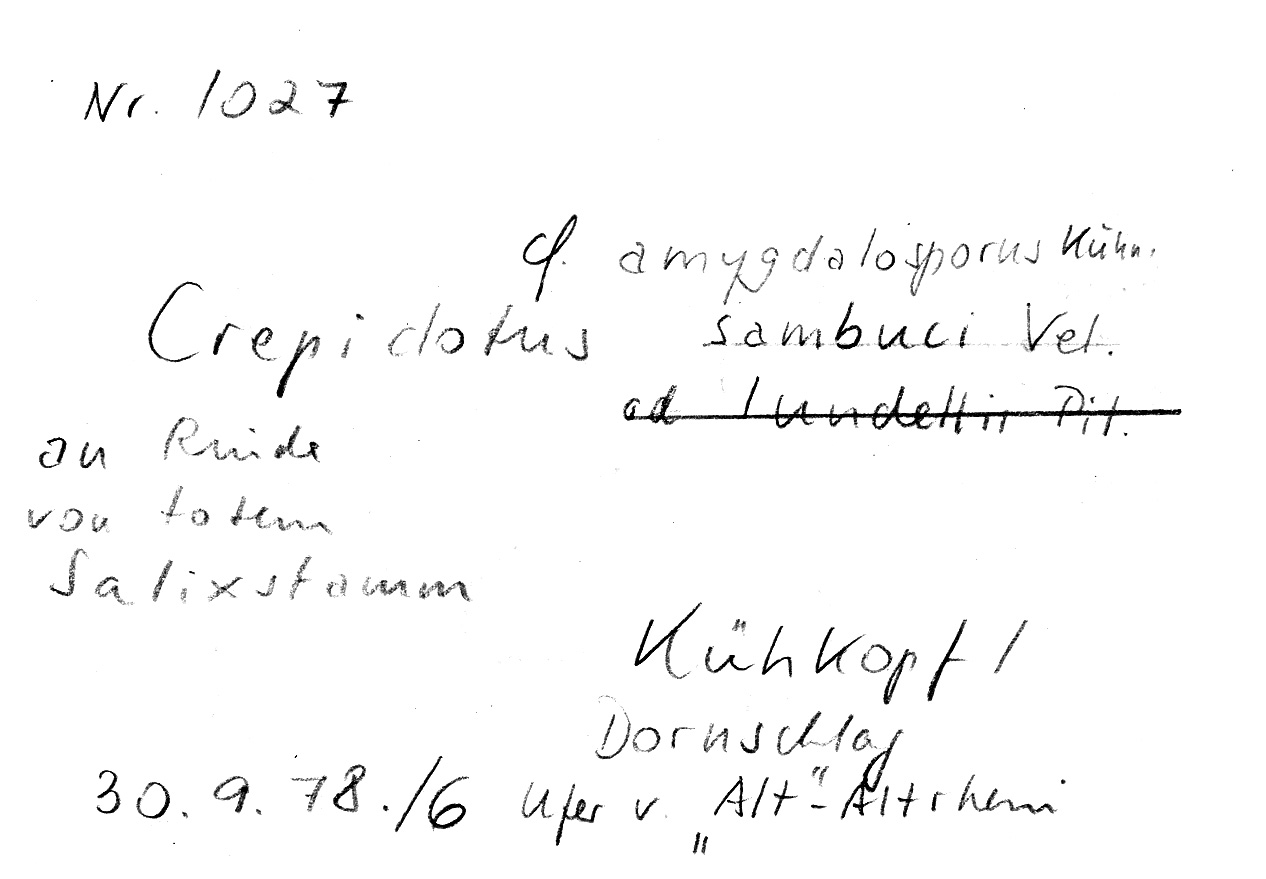 Nr. 1027
cf. amygdalosporus Kühn.
Crepidotus sambuci Vel.
ad lundellii Pil.
an Rinde
von totem
Salixstamm
Kühkopf /
Dornschlag
30. 9. 78./6 Ufer v. „Alt"-Altrhein